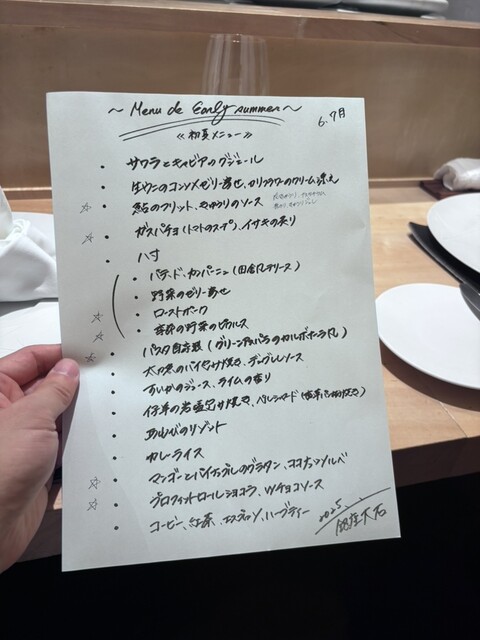 ~ Menu de Early summer ~
6.7月
≪初夏メニュー≫
・サワラとキャビアのグジェール
・生ウニのコンソメゼリー寄せ、カリフラワーのクリーム添え
☆・鮎のフリット、きゅうりのソース
☆・ガスパチョ(トマトのスープ)、イサキの炙り
・八寸
・パテ・ド・カンパーニュ(田舎風テリーヌ)
・野菜のゼリー寄せ
☆・ローストポーク
☆・季節の野菜のピクルス
☆・パスタ自家製(グリーンアスパラのカルボナーラ風)
・太刀魚のパイ包み焼き、ディグレレソース
・すいかのジュース、ライムの香り
・仔羊の岩塩包み焼き、ペルシヤード(香草パン粉焼き)
・のリゾット
・カレーライス
☆・マンゴーとパイナップルのグラタン、ココナッツソルベ
☆・プロフィットロールショコラ、Wチョコソース
・コーヒー、紅茶、エスプレッソ、ハーブティー
2025.
銀座大石